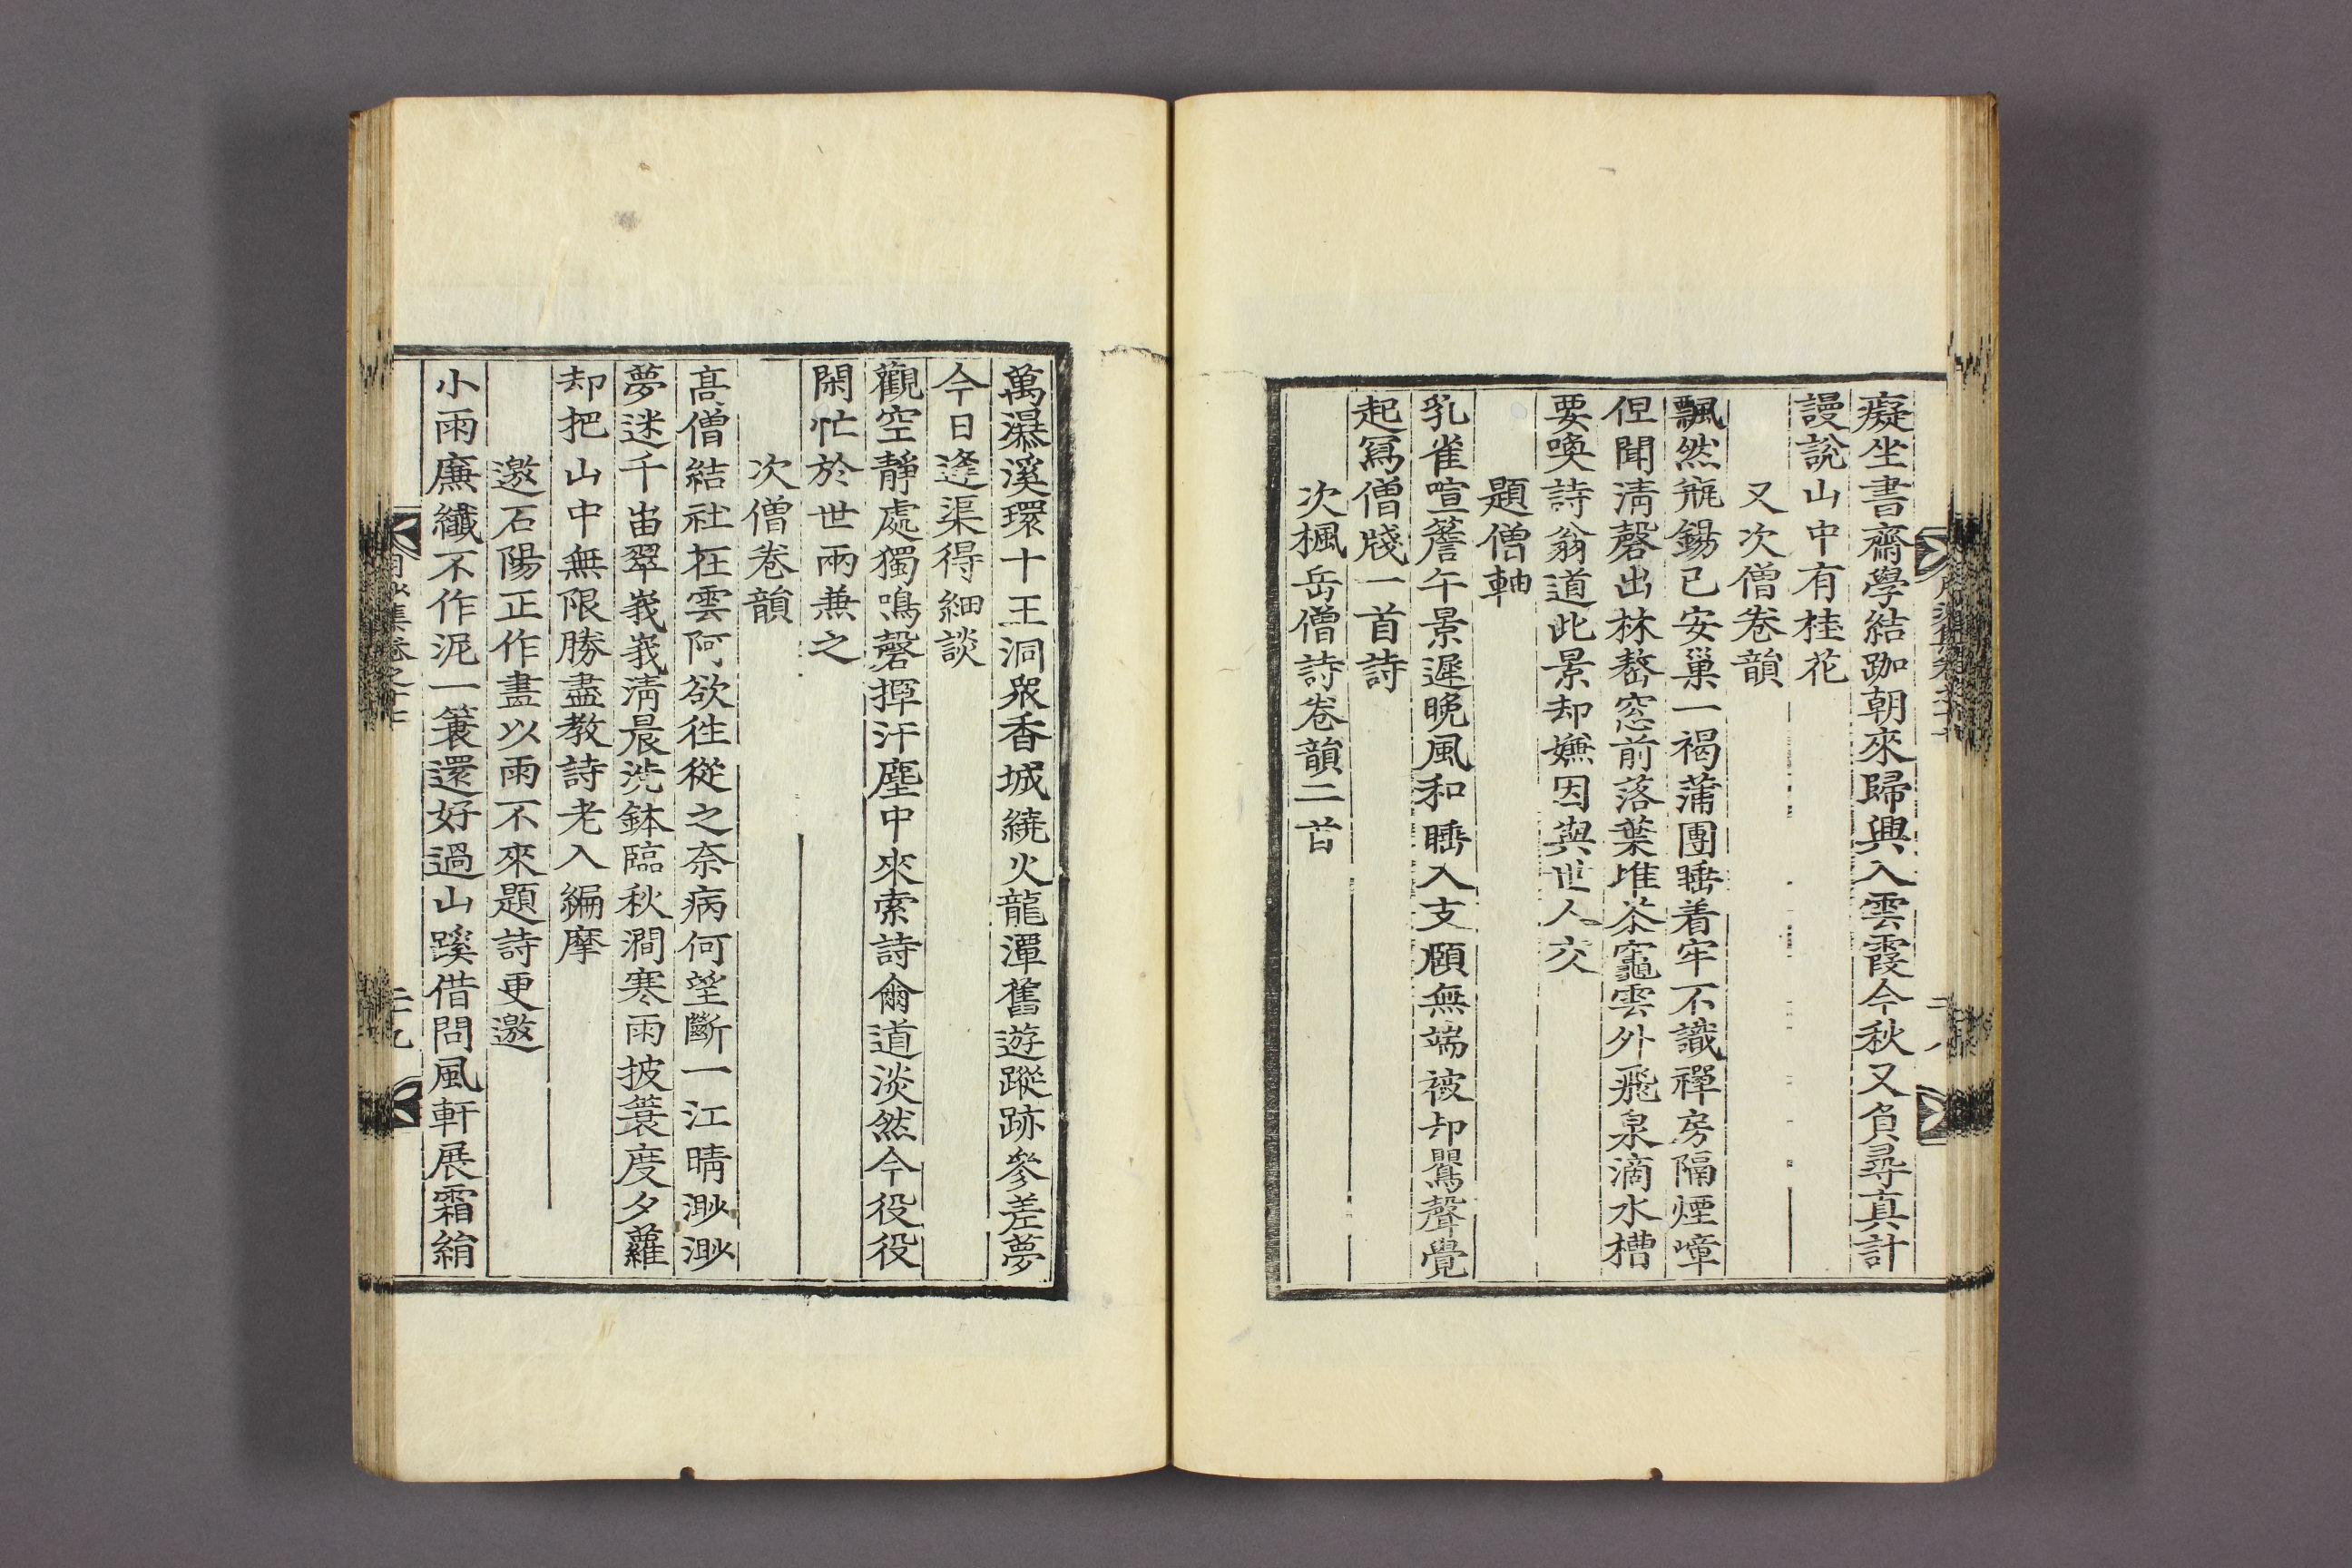 癡坐書齋學結跏朝來歸興入雲霞今秋又負尋真計
謾說山中有桂花
又次僧卷韻
飄然甁錫已安巢一褐蒲團睡着牢不識禪房隔煙嶂
但聞淸磬出林嶅窓前落葉堆茶竈雲外飛泉滴水槽
要喚詩翁道此景却嫌因與世人交
題僧軸
乳雀喧簷午景遲晩風和睡入支頤無端被却鸎聲覺
起寫僧牋一首詩
次楓岳僧詩卷韻二首
萬瀑溪環十王洞衆香城繞火龍潭舊遊蹤跡參差夢
今日逢渠得細談
觀空靜處獨鳴磬揮汗塵中來索詩爾道淡然今役役
閑忙於世兩兼之
次僧卷韻
髙僧結社在雲阿欲徃從之奈病何望斷一江晴渺渺
夢迷千岀翠峩峩淸晨洗鉢臨秋澗寒雨披簑度夕蘿
却把山中無限勝盡教詩老入編摩
邀石陽正作畵以雨不來題詩更邀
小雨廉纖不作泥一簑還好過山蹊借問風軒展霜綃
集卷之十七
二九